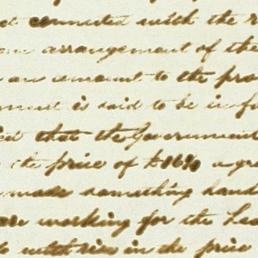 connected with the
arrangement of the
an amount to the pro
ment is said to be in f
ed that the Government
the price of
made something hand
are working for the Lea
in the price